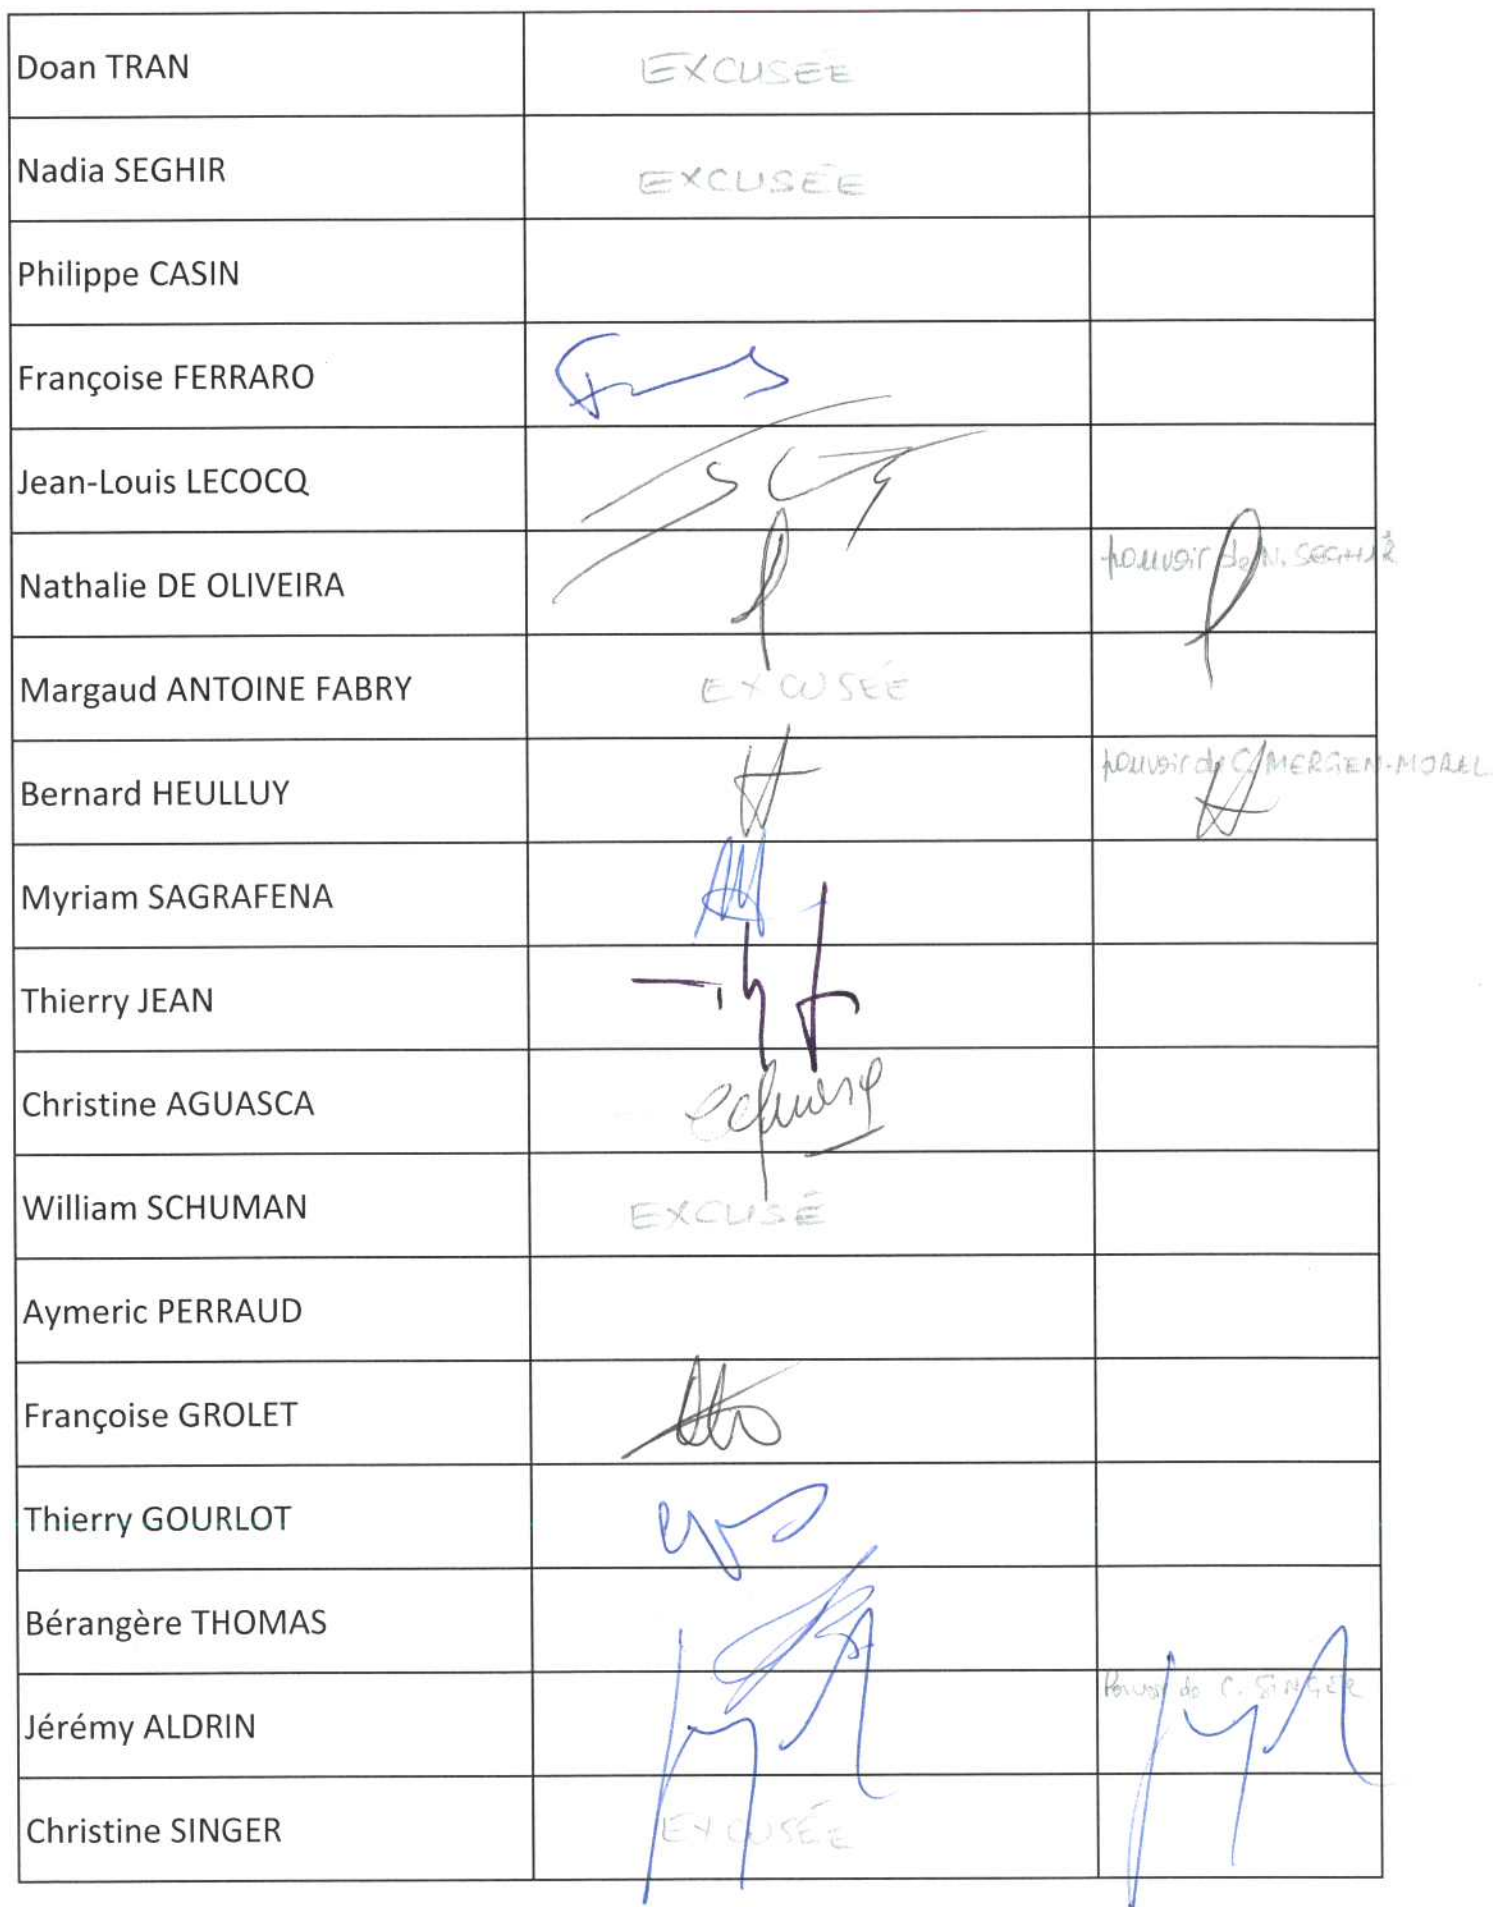 Doan TRAN EXCUSÉE
Nadia SEGHIR EXCUSÉE
Philippe CASIN
Françoise FERRARO
Jean-Louis LECOCQ
Nathalie DE OLIVEIRA pouvoir de N. SEGHIR
Margaud ANTOINE FABRY EXCUSÉE
Bernard HEULLUY pouvoir de C. MERGEN-MOREL
Myriam SAGRAFENA
Thierry JEAN
Christine AGUASCA
William SCHUMAN EXCUSÉ
Aymeric PERRAUD
Françoise GROLET
Thierry GOURLOT
Bérangère THOMAS
Jérémy ALDRIN Pouvoir de C. SINGER
Christine SINGER EXCUSÉE